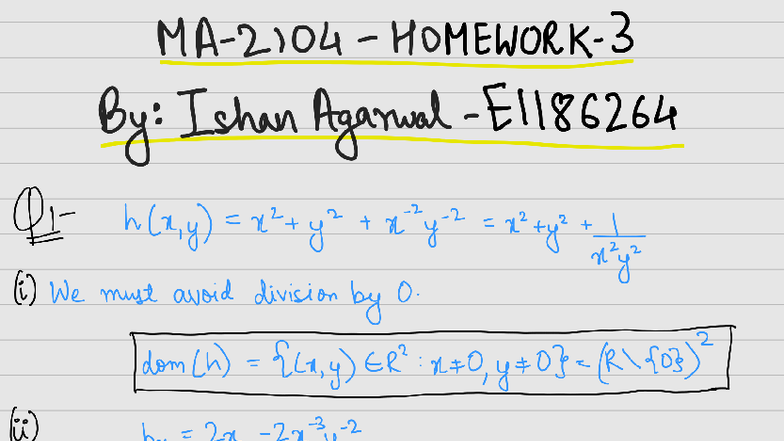 MA-2104 - HOMEWORK-3
By: Ishan Agarwal - E1186264
Q1- h(x,y) = x² + y² + x⁻²y⁻² = x² + y² + 1/(x²y²)
(i) We must avoid division by 0.
dom(h) = {(x,y) ∈ R² : x≠0, y≠0} = (R\{0})²
(ii) hₓ = 2x - 2x⁻³y⁻²